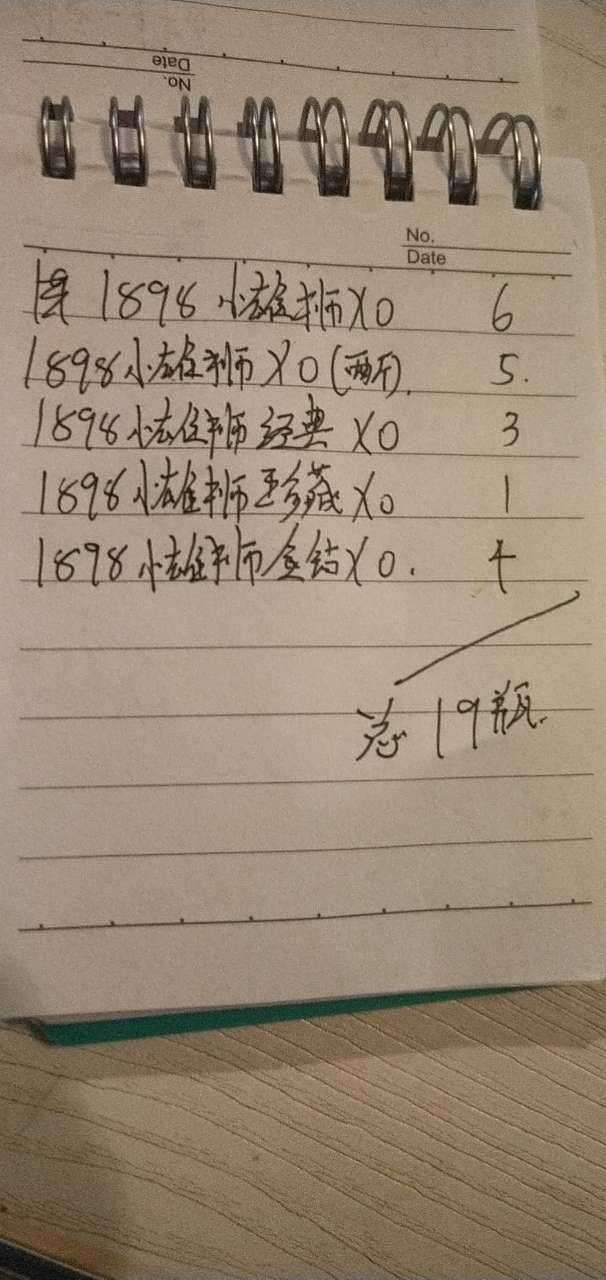 No.
Date
No.
Date
1898 小雄狮 XO 6
1898 小雄狮 XO (两斤). 5.
1898 小雄狮 经典 XO 3
1898 小雄狮 珍藏 XO 1
1898 小雄狮 金钻 XO. 4
总 19 瓶.